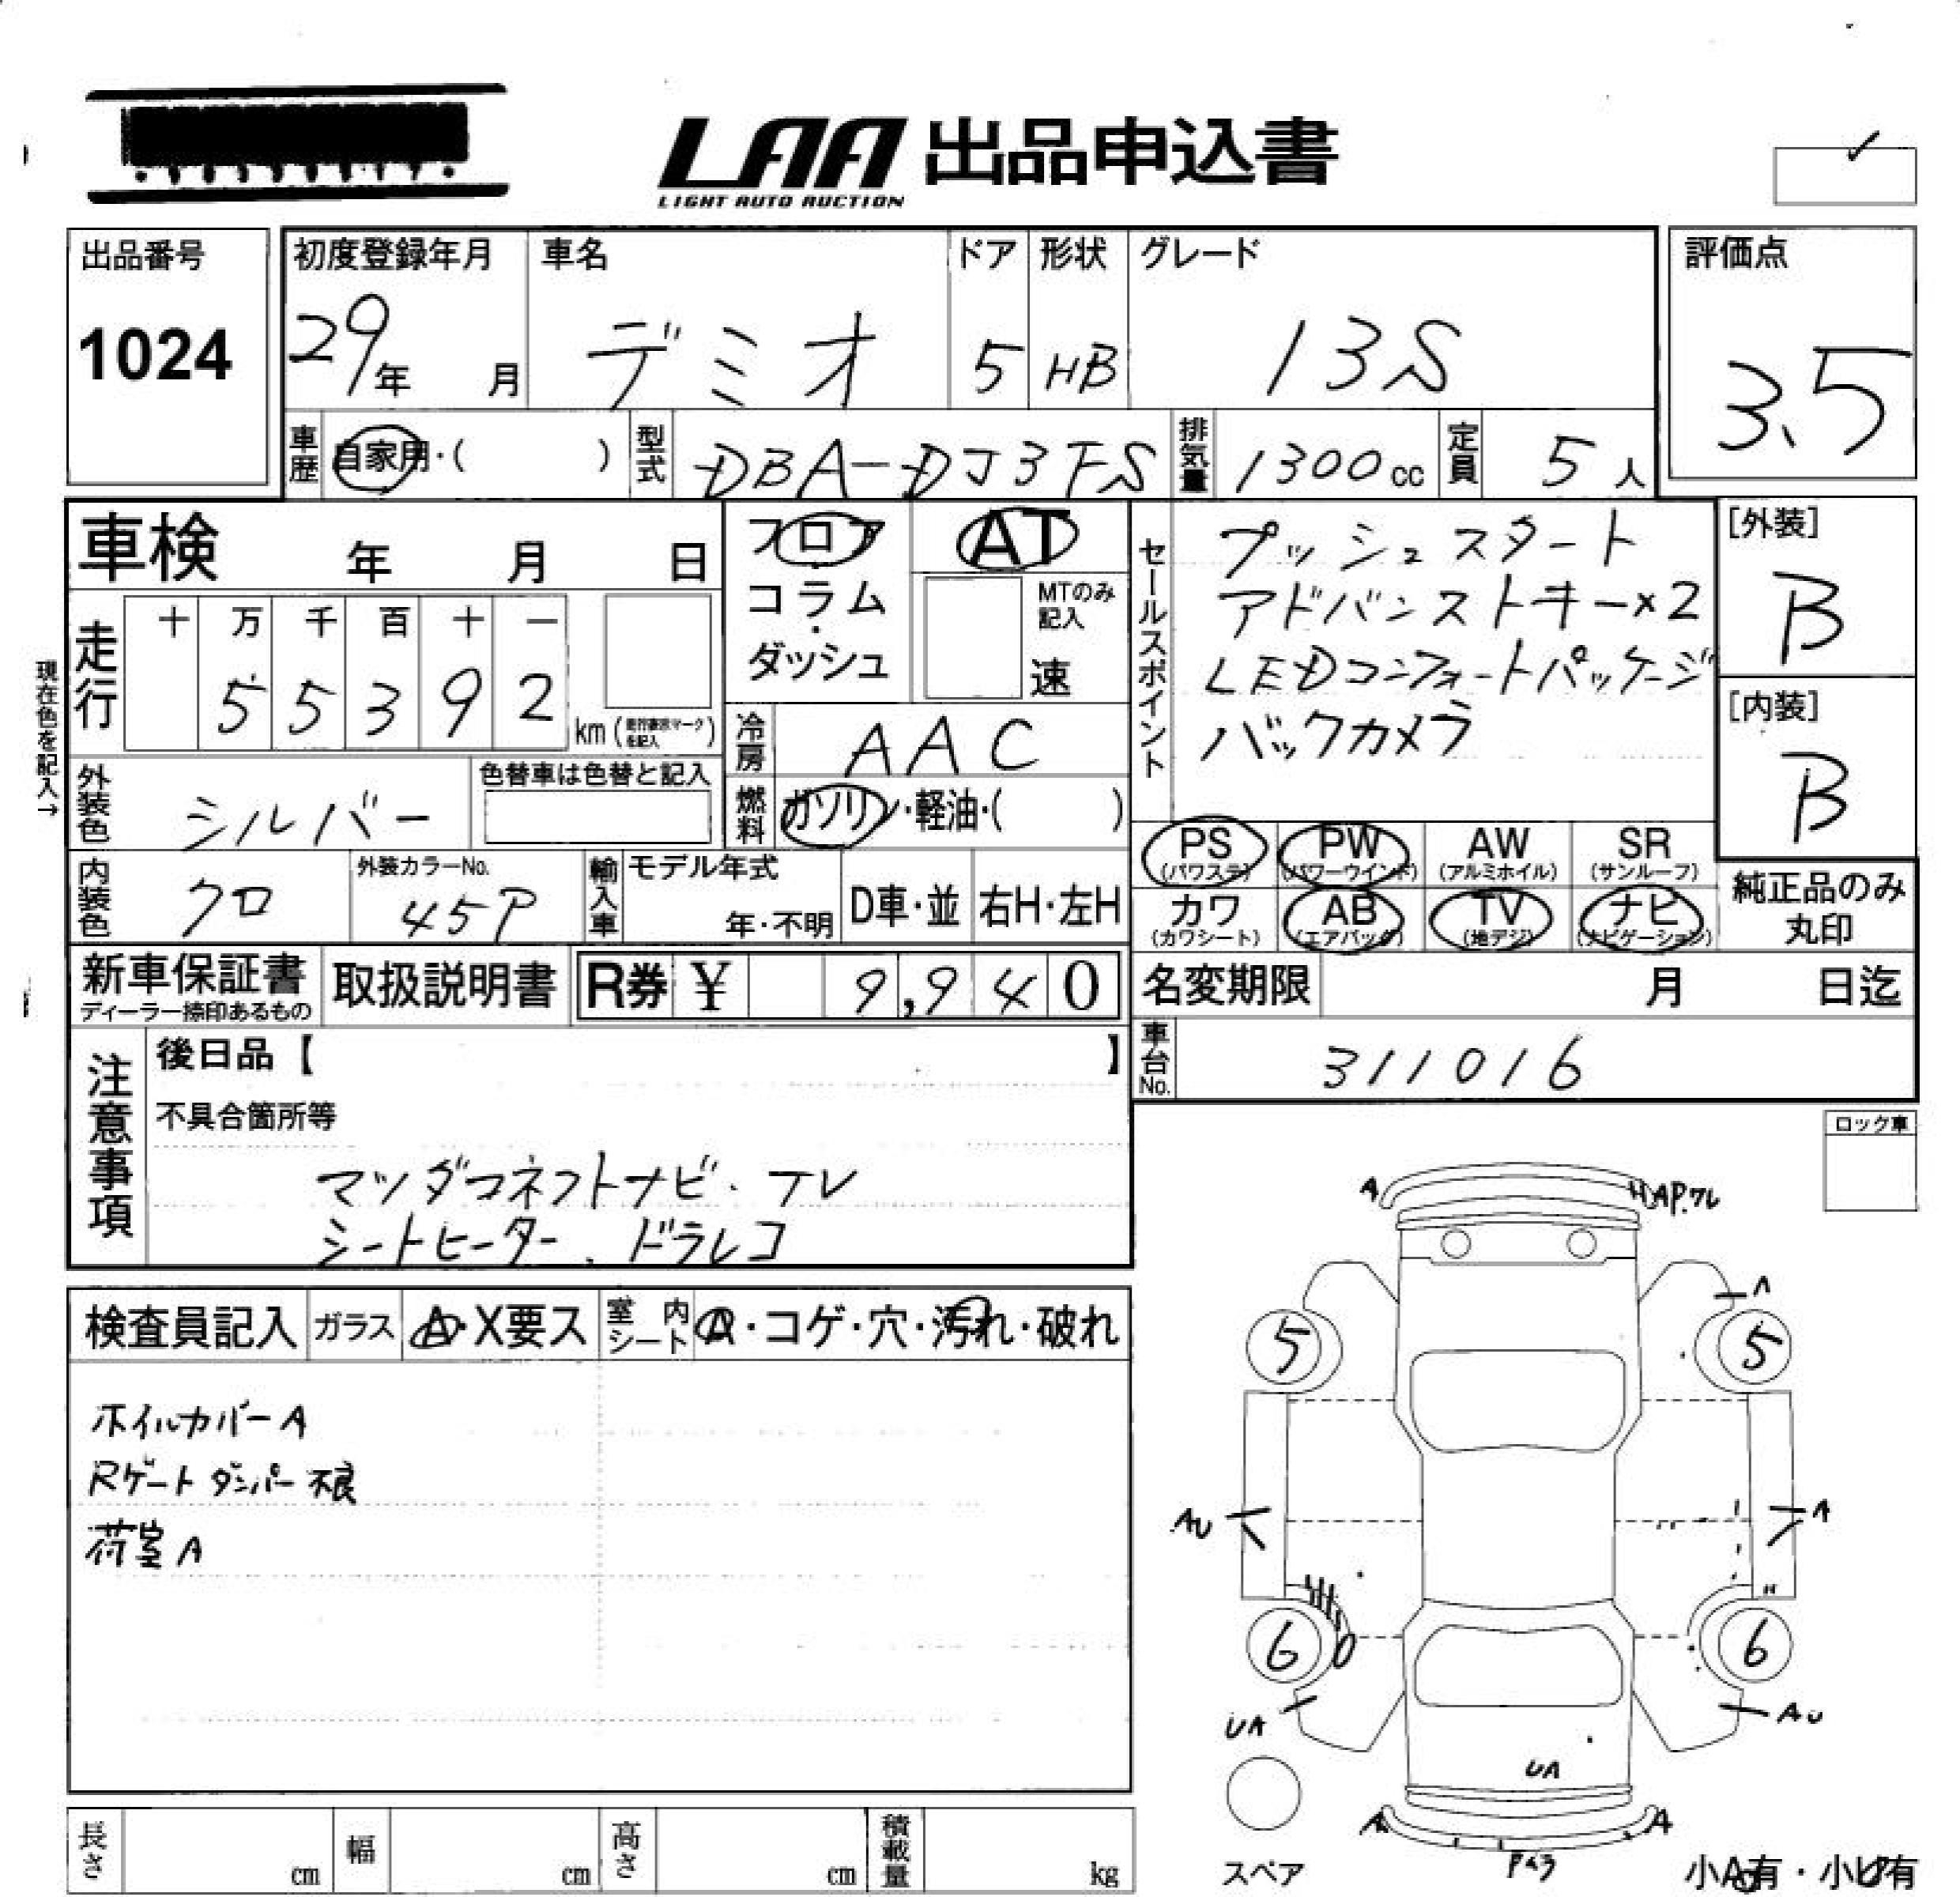 LAA 出品申込書
LIGHT AUTO AUCTION
出品番号
1024
初度登録年月
29年 月
車名
デミオ
ドア
5
形状
HB
グレード
13S
評価点
3.5
車歴
自家用・( )
型式
DBA-DJ3FS
排気量
1300cc
定員
5人
車検 年 月 日
フロア
・
コラム
・
ダッシュ
AT
MTのみ
記入
速
セールスポイント
プッシュスタート
アドバンストキー×2
LEDコンフォートパッケージ
バックカメラ
[外装]
B
[内装]
B
現在色を記入→
走行
十 万 千 百 十 一
5 5 3 9 2
km (走行表示マークを記入)
冷房
AAC
外装色
シルバー
色替車は色替と記入
燃料
ガソリン・軽油・( )
PS
(パワステ)
PW
(パワーウインド)
AW
(アルミホイル)
SR
(サンルーフ)
カワ
(カワシート)
AB
(エアバック)
TV
(地デジ)
ナビ
(ナビゲーション)
純正品のみ
丸印
内装色
クロ
外装カラーNo.
45P
輸入車
モデル年式
年・不明
D車・並
右H・左H
新車保証書
ディーラー捺印あるもの
取扱説明書
R券 ¥ 9,940
名変期限 月 日迄
車台No.
311016
注意事項
後日品【 】
不具合箇所等
マツダコネクトナビ・テレ
シートヒーター、ドラレコ
ロック車
検査員記入
ガラス
A・X要ス
室内シート
A・コゲ・穴・汚れ・破れ
ホイルカバーA
Rゲートダンパー不良
荷室A
A
AP.ワレ
A
5
5
AU
A
6
6
UA
AU
UA
A
A
スペア
小A有・小U有
長さ cm
幅 cm
高さ cm
積載量 kg